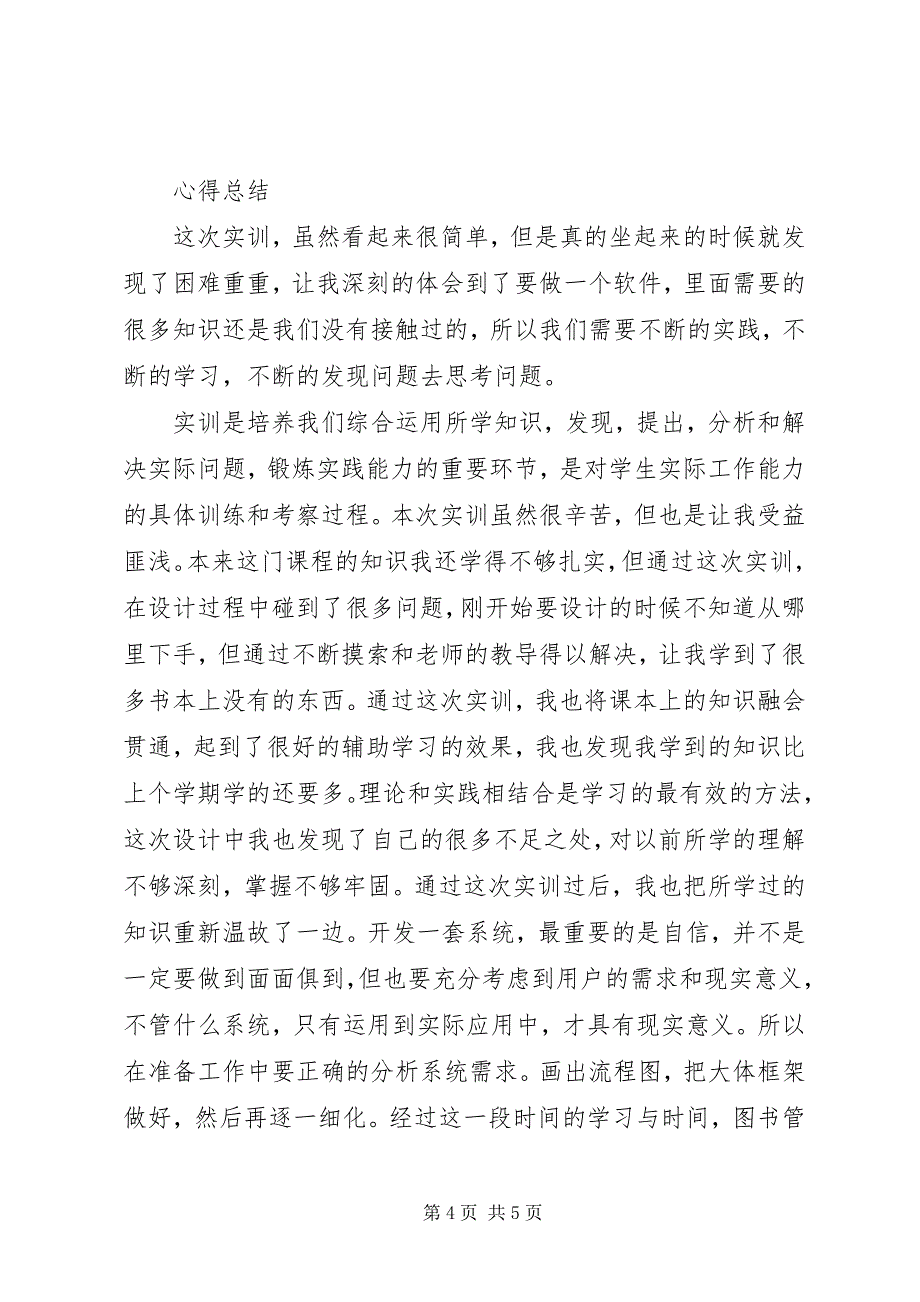 心得总结
这次实训，虽然看起来很简单，但是真的坐起来的时候就发
现了困难重重，让我深刻的体会到了要做一个软件，里面需要的
很多知识还是我们没有接触过的，所以我们需要不断的实践，不
断的学习，不断的发现问题去思考问题。
实训是培养我们综合运用所学知识，发现，提出，分析和解
决实际问题，锻炼实践能力的重要环节，是对学生实际工作能力
的具体训练和考察过程。本次实训虽然很辛苦，但也是让我受益
匪浅。本来这门课程的知识我还学得不够扎实，但通过这次实训，
在设计过程中碰到了很多问题，刚开始要设计的时候不知道从哪
里下手，但通过不断摸索和老师的教导得以解决，让我学到了很
多书本上没有的东西。通过这次实训，我也将课本上的知识融会
贯通，起到了很好的辅助学习的效果，我也发现我学到的知识比
上个学期学的还要多。理论和实践相结合是学习的最有效的方法，
这次设计中我也发现了自己的很多不足之处，对以前所学的理解
不够深刻，掌握不够牢固。通过这次实训过后，我也把所学过的
知识重新温故了一边。开发一套系统，最重要的是自信，并不是
一定要做到面面俱到，但也要充分考虑到用户的需求和现实意义，
不管什么系统，只有运用到实际应用中，才具有现实意义。所以
在准备工作中要正确的分析系统需求。画出流程图，把大体框架
做好，然后再逐一细化。经过这一段时间的学习与时间，图书管
第 4 页 共 5 页